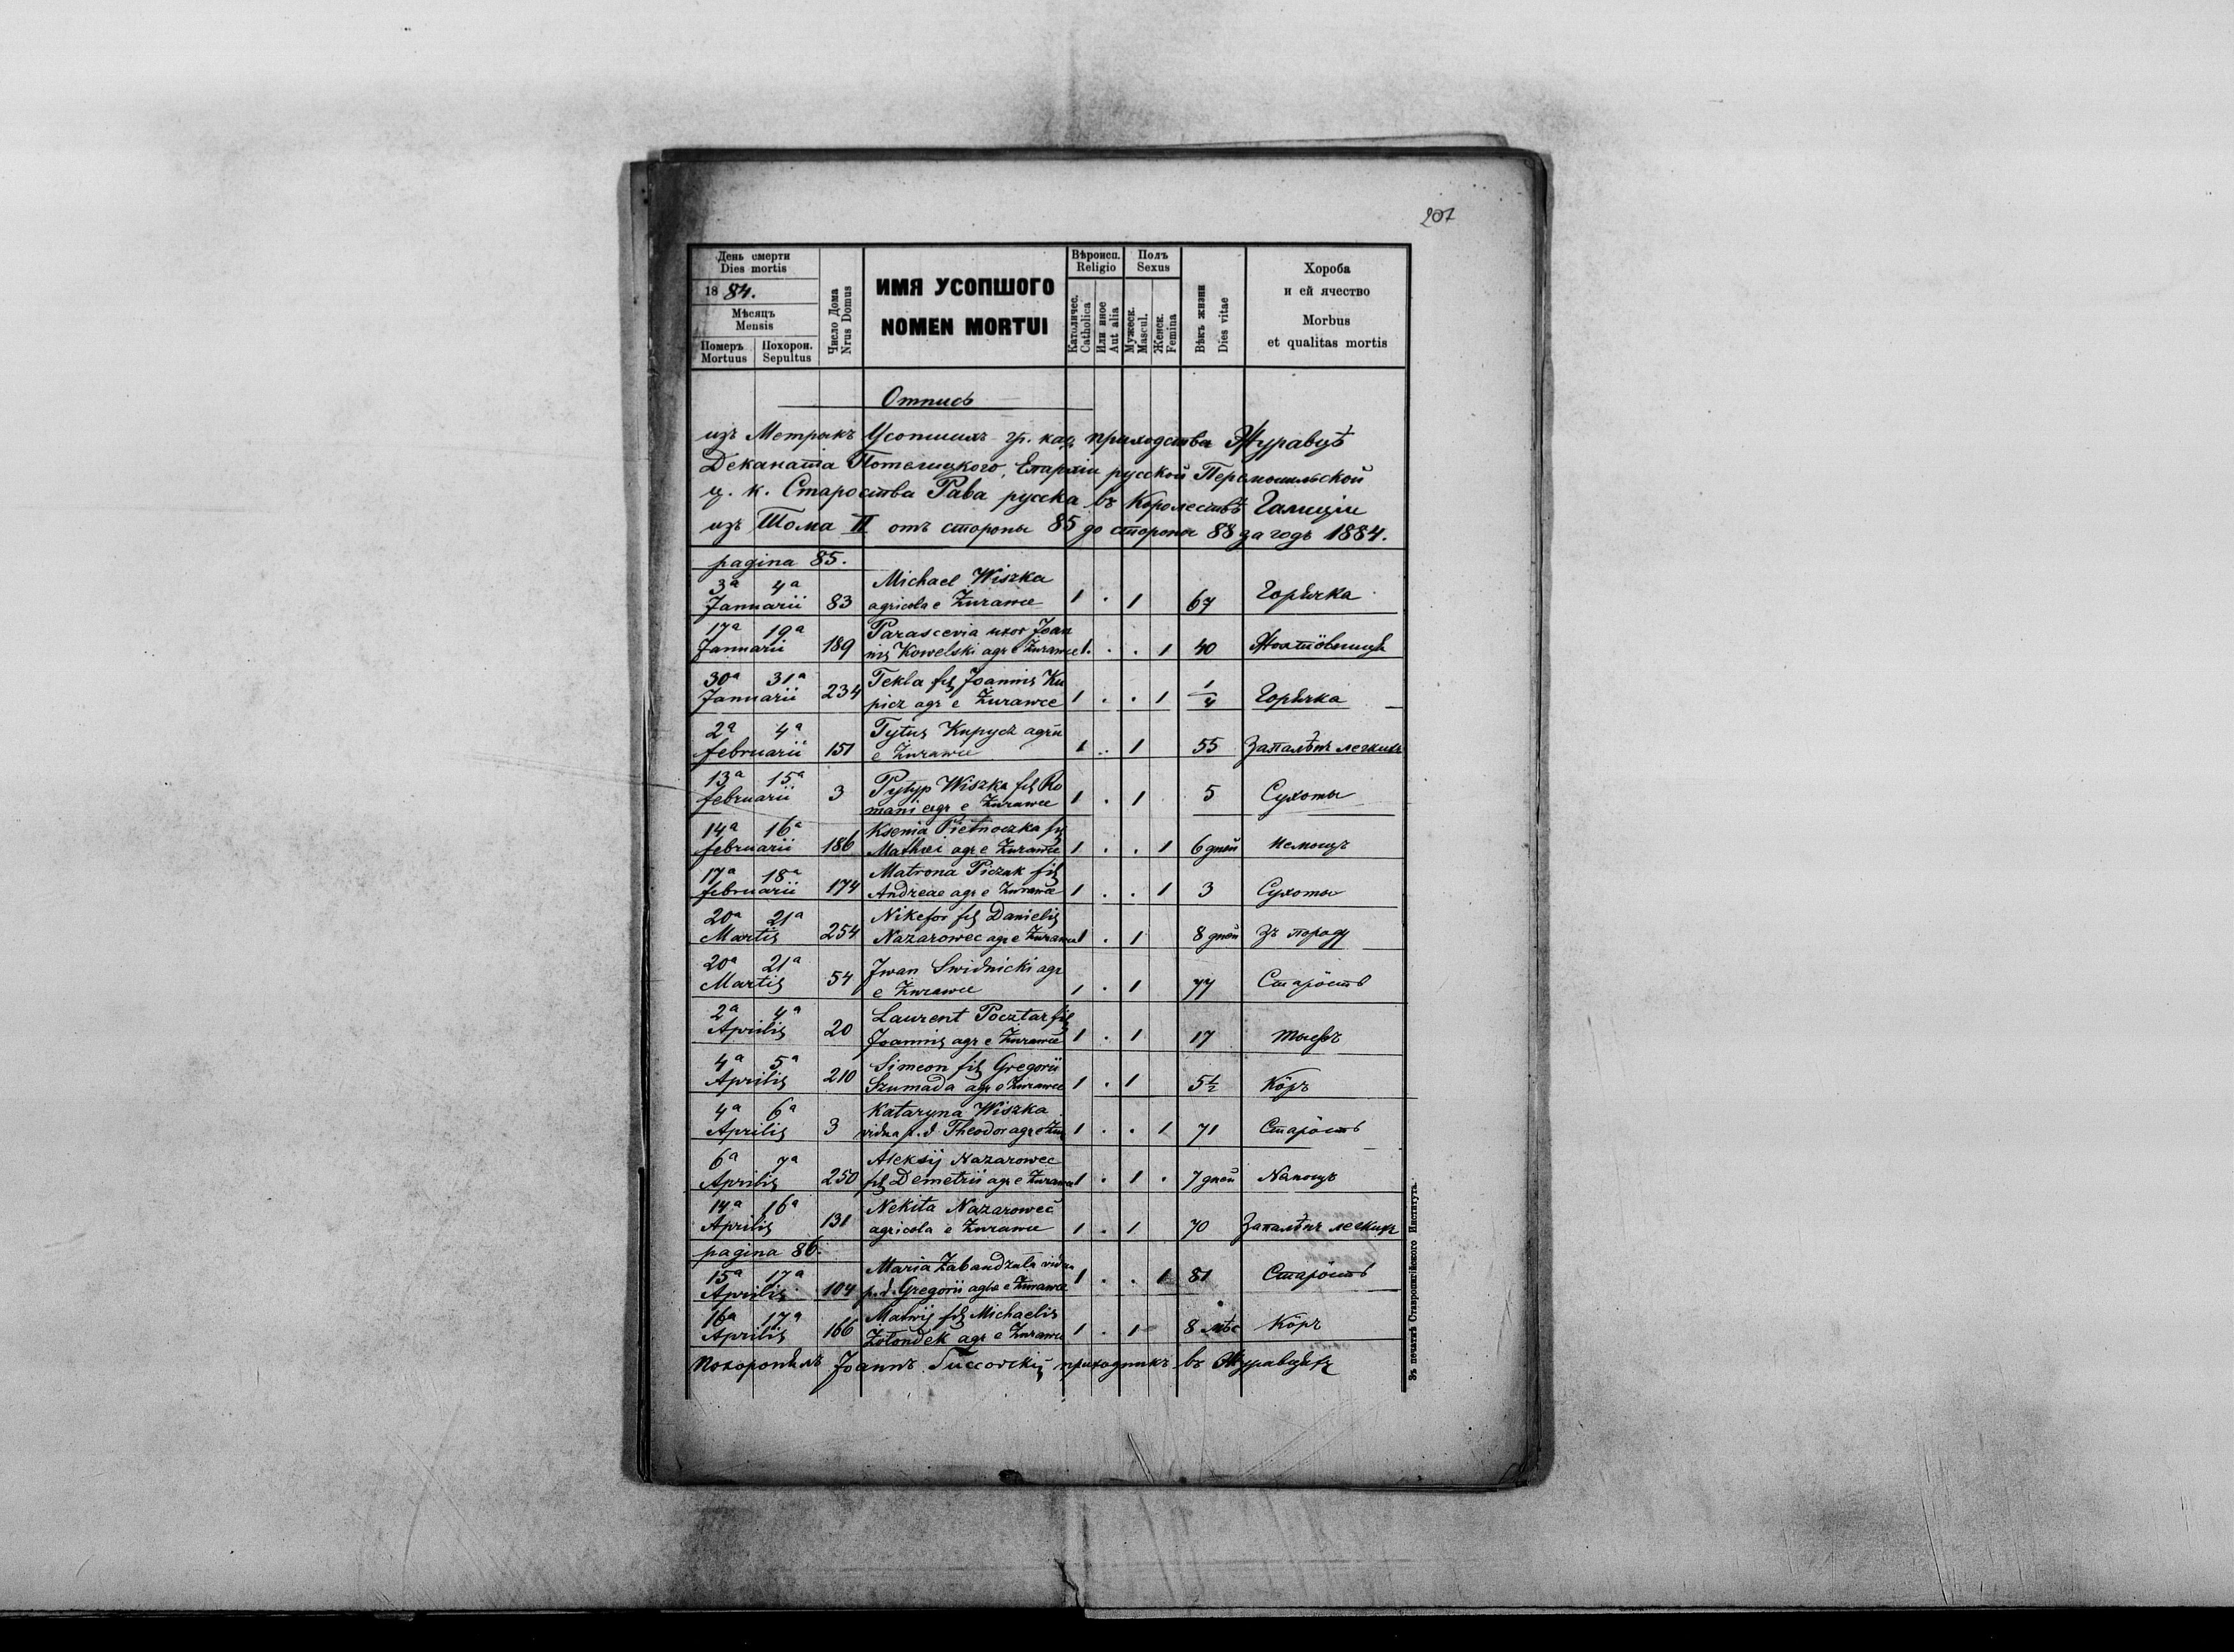 207
День смерти
Dies mortis
1884.
Мѣсяцъ
Mensis
Померъ Похорон.
Mortuus Sepultus
Число Дома
Nrus Domus
ИМЯ УСОПШОГО
NOMEN MORTUI
Вѣроисп.
Religio
Католичес.
Catholica
Или иное
Aut alia
Полъ
Sexus
Мужеск.
Mascul.
Женск.
Femina
Вѣкъ жизни
Dies vitae
Хороба
и ей ячество
Morbus
et qualitas mortis
Отпись
изъ Метрикъ Усопшихъ гр. кат. приходства Журавцѣ
Деканата Потелицкого, Епархіи русской Перемышльской
ц. к. Староства Рава русска въ Королествѣ Галиціи
изъ Тома II отъ стороны 85 до стороны 88 за годъ 1884.
pagina 85.
3a 4a Michael Wiszka
Januarii 83 agricola e Żurawce 1 . 1 67 Горячка
17a 19a Parascevia uxor Joan
Januarii 189 nis Kowelski agr e Żurawce 1. . . 1 40
30a 31a Tekla fil Joannis Ku
Januarii 234 picz agr e Żurawce 1 . . 1 1/4 Горячка
2a 4a Tytus Kupycz
februarii 151 e Żurawce 1 . 1 55 Запалѣнъ легкихъ
13a 15a Pytyp Wiszka fil Ro
februarii 3 mani agr e Żurawce 1 . 1 5 Сухоты
14a 16a Ksenia Pietnoczka fil
februarii 186 Mathei agr e Żurawce 1 . . 1 6 дней немощь
17a 18a Matrona Piczak fil
februarii 174 Andreae agr e Żurawce 1 . . 1 3 Сухоты
20a 21a Nikefor fil Danielis
Martis 254 Nazarowec agr e Żurawce 1 . 1 8 дней зъ породу
20a 21a Jwan Swidnicki agr
Martis 54 e Żurawce 1 . 1 77 Старôсть
2a 4a Laurent Pocztar fil
Aprilis 20 Joannis agr e Żurawce 1 . 1 17
4a 5a Simeon fil Gregorii
Aprilis 210 Szumada agr e Żurawce 1 . 1 5½ Кôръ
4a 6a Kataryna Wiszka
Aprilis 3 vidua p. d. Theodor agr e Żur 1 . . 1 71 Старôсть
6a 7a Aleksij Nazarowec
Aprilis 250 fil Demetrii agr e Żurawce 1 . 1 . 7 дней
14a 16a Nekita Nazarowec
Aprilis 131 agricola e Żurawce 1 . 1 70 Запалѣнъ легкихъ
pagina 86.
15a 17a Maria Zabandzala vidua
Aprilis 104 p. d. Gregorii agr e Żurawce 1 . . 1 81 Старôсть
16a 17a Matwij fil Michaelis
Aprilis 166 Żołondek agr e Żurawce 1 . 1 8 мѣс Кôръ
Похоронилъ Joannъ приходникъ въ Журавцѣхъ
Зъ печатнѣ Ставропигійского Института.